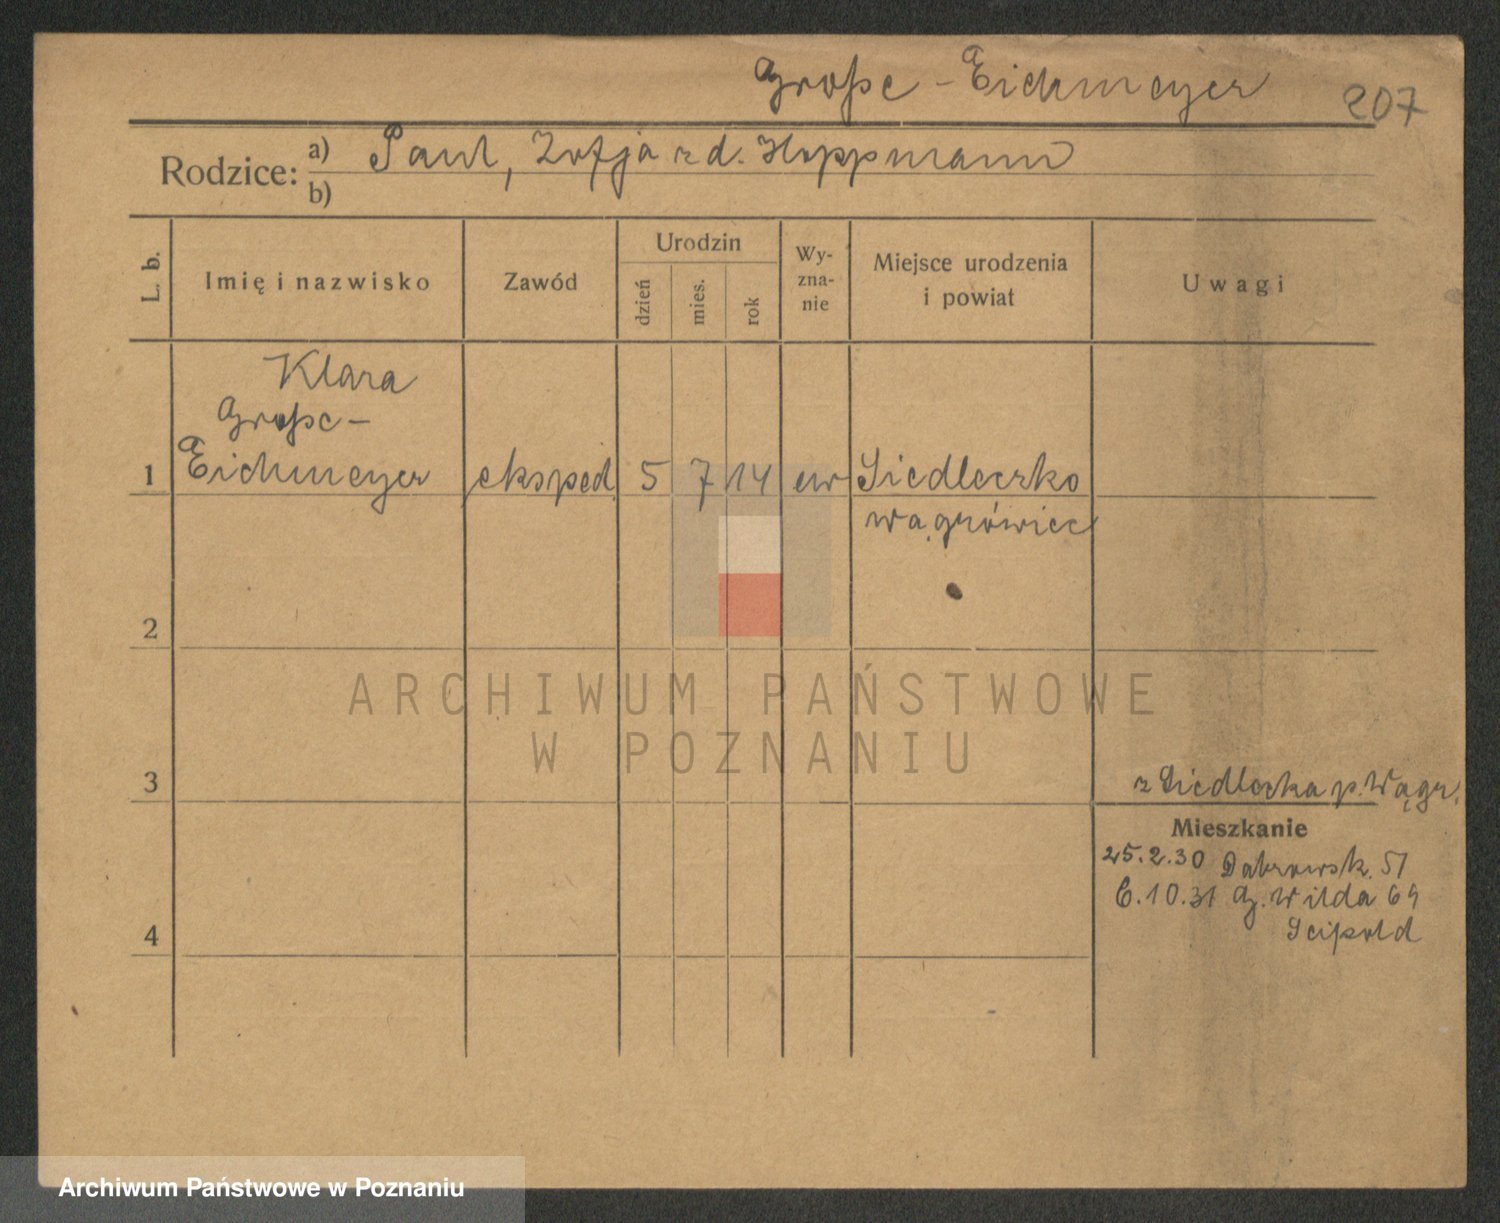 Große-Eichmeyer 207
Rodzice: a) Paul, Zofja z d. Hoppmann
b)
L. b. Imię i nazwisko Zawód Urodzin dzień mies. rok Wyznanie Miejsce urodzenia i powiat Uwagi
Klara
Große-
1 Eichmeyer eksped. 5 7 14 ew Siedleczko
Wągrówiec
2
ARCHIWUM PAŃSTWOWE
W POZNANIU
z Siedlecka p. Wągr.
3
Mieszkanie
25.2.30 Dąbrowsk. 51
6.10.31 G. Wilda 69
4
Archiwum Państwowe w Poznaniu